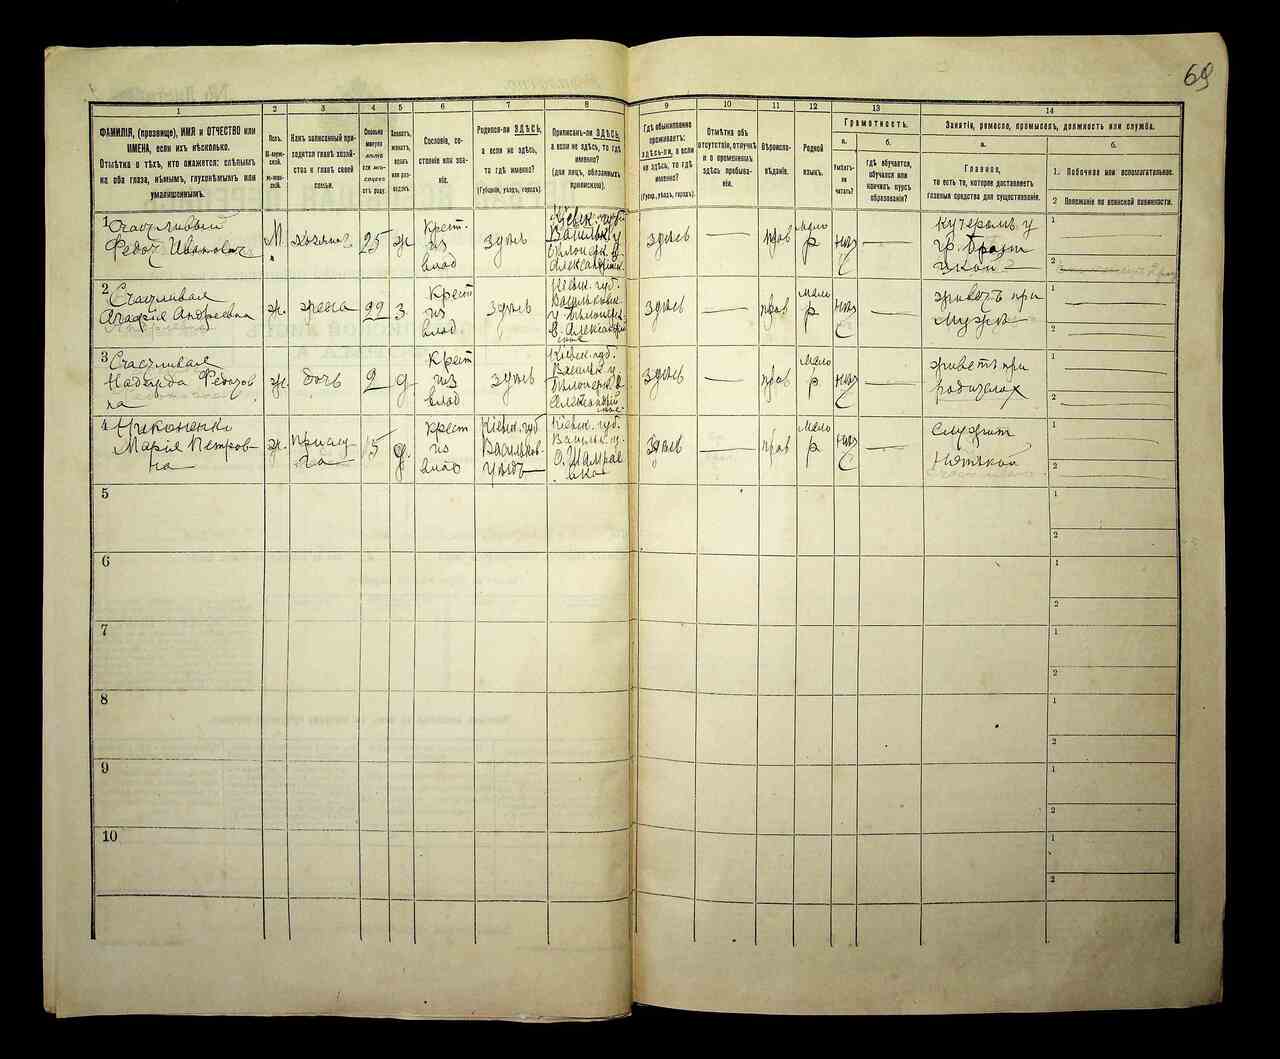 69
1
ФАМИЛІЯ, (прозвище), ИМЯ и ОТЧЕСТВО или
ИМЕНА, если ихъ нѣсколько.
Отмѣтка о тѣхъ, кто окажется: слѣпымъ
на оба глаза, нѣмымъ, глухонѣмымъ или
умалишеннымъ.
2
Полъ.
3
Какъ записанный при-
ходится главѣ хозяй-
ства и главѣ своей
семьи.
4
Сколько
минуло
лѣтъ
или мѣ-
сяцевъ
отъ роду.
5
Холостъ,
женатъ,
вдовъ
или раз-
веденъ.
6
Сословіе, со-
стояніе или зва-
ніе.
7
Родился-ли ЗДѢСЬ,
а если не здѣсь,
то гдѣ именно?
(Губернія, уѣздъ, городъ).
8
Приписанъ-ли ЗДѢСЬ,
а если не здѣсь, то гдѣ
именно?
(для лицъ, обязанныхъ
припискою).
9
Гдѣ обыкновенно
проживаетъ:
ЗДѢСЬ-ли, а если
не здѣсь, то гдѣ
именно?
(Губер., уѣздъ, городъ).
10
Отмѣтка объ
отсутствіи, отлучкѣ
и о временномъ
здѣсь пребыва-
ніи.
11
Вѣроиспо-
вѣданіе.
12
Родной
языкъ.
13
Грамотность.
а.
Умѣетъ-
ли
читать?
б.
гдѣ обучается,
обучался или
кончилъ курсъ
образованія?
14
Занятія, ремесло, промыселъ, должность или служба.
а.
Главное,
то есть то, которое доставляетъ
главныя средства для существованія.
б.
1. Побочное или вспомогательное.
2 Положеніе по воинской повинности.
1
Счастливый
Федотъ Ивановичъ
М.
хозяинъ
25
ж
Крест.
из
влад
здѣсь
Кіевск. губ.
Васильк. у
здѣсь
прав
мало
р
нѣтъ
кучеромъ у
гр. Браниц
цкой
1
2
2
Счастливая
Андреевна
ж.
жена
22
з
Крест
из
влад
здѣсь
Кіевск. губ.
Васильковск.
здѣсь
прав
мало
р
нѣтъ
живетъ при
мужѣ
1
2
3
Счастливая
Надежда Федотов
на
ж.
дочь
2
д
Крест
из
влад
здѣсь
Кіевск. губ.
Васильк. у
здѣсь
прав
мало
р
нѣтъ
живетъ при
родителях
1
2
4
Никоненко
Марія Петров-
на
ж.
прислу
га
15
д.
крест
из
влад
Кіевск. губ
Васильков.
уѣздъ
Кіевск. губ.
Васильк. у.
здѣсь
прав
мало
р
нѣтъ
служит
нянькой
1
2
5
1
2
6
1
2
7
1
2
8
1
2
9
1
2
10
1
2